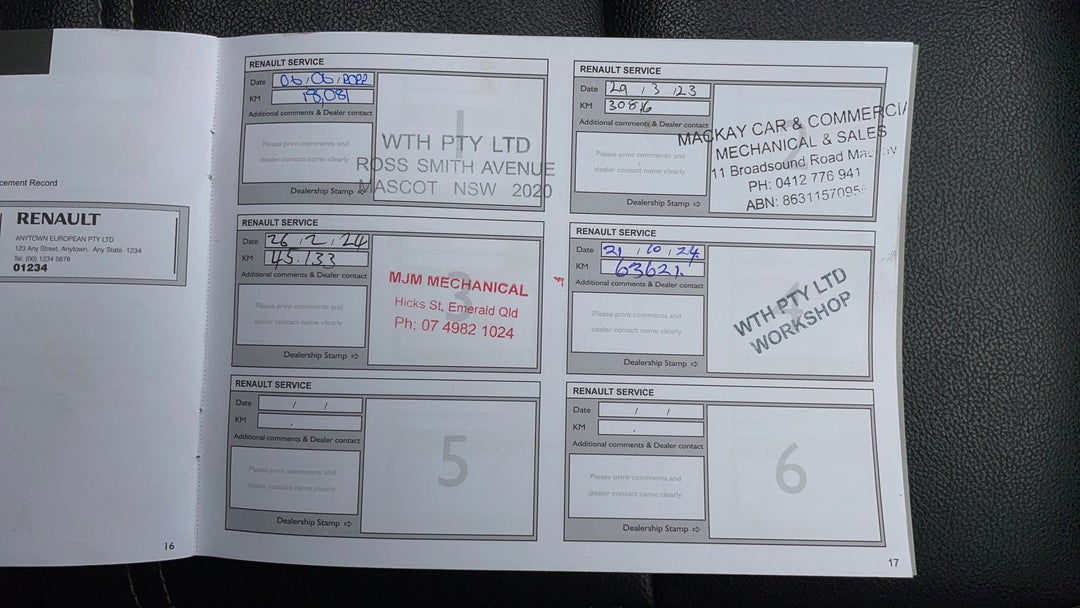 cement Record
RENAULT
ANYTOWN EUROPEAN PTY LTD
123 Any Street, Anytown. Any State 1234
Tel: (00) 1234 5679
01234
16
RENAULT SERVICE
Date 06/06/2022
KM 18,081
Additional comments & Dealer contact
Please print comments and
dealer contact name clearly
Dealership Stamp ⇨
1
WTH PTY LTD
ROSS SMITH AVENUE
MASCOT NSW 2020
RENAULT SERVICE
Date 29/3/23
KM 30816
Additional comments & Dealer contact
Please print comments and
dealer contact name clearly
Dealership Stamp ⇨
2
MACKAY CAR & COMMERCIA
MECHANICAL & SALES
11 Broadsound Road
PH: 0412 776 941
ABN: 8631157095
RENAULT SERVICE
Date 26/2/24
KM 45.133
Additional comments & Dealer contact
Please print comments and
dealer contact name clearly
Dealership Stamp ⇨
3
MJM MECHANICAL
Hicks St, Emerald Qld
Ph; 07 4982 1024
RENAULT SERVICE
Date 21/10/24
KM 63621
Additional comments & Dealer contact
Please print comments and
dealer contact name clearly
Dealership Stamp ⇨
4
WTH PTY LTD
WORKSHOP
RENAULT SERVICE
Date / /
KM
Additional comments & Dealer contact
Please print comments and
dealer contact name clearly
Dealership Stamp ⇨
5
RENAULT SERVICE
Date / /
KM
Additional comments & Dealer contact
Please print comments and
dealer contact name clearly
Dealership Stamp ⇨
6
17